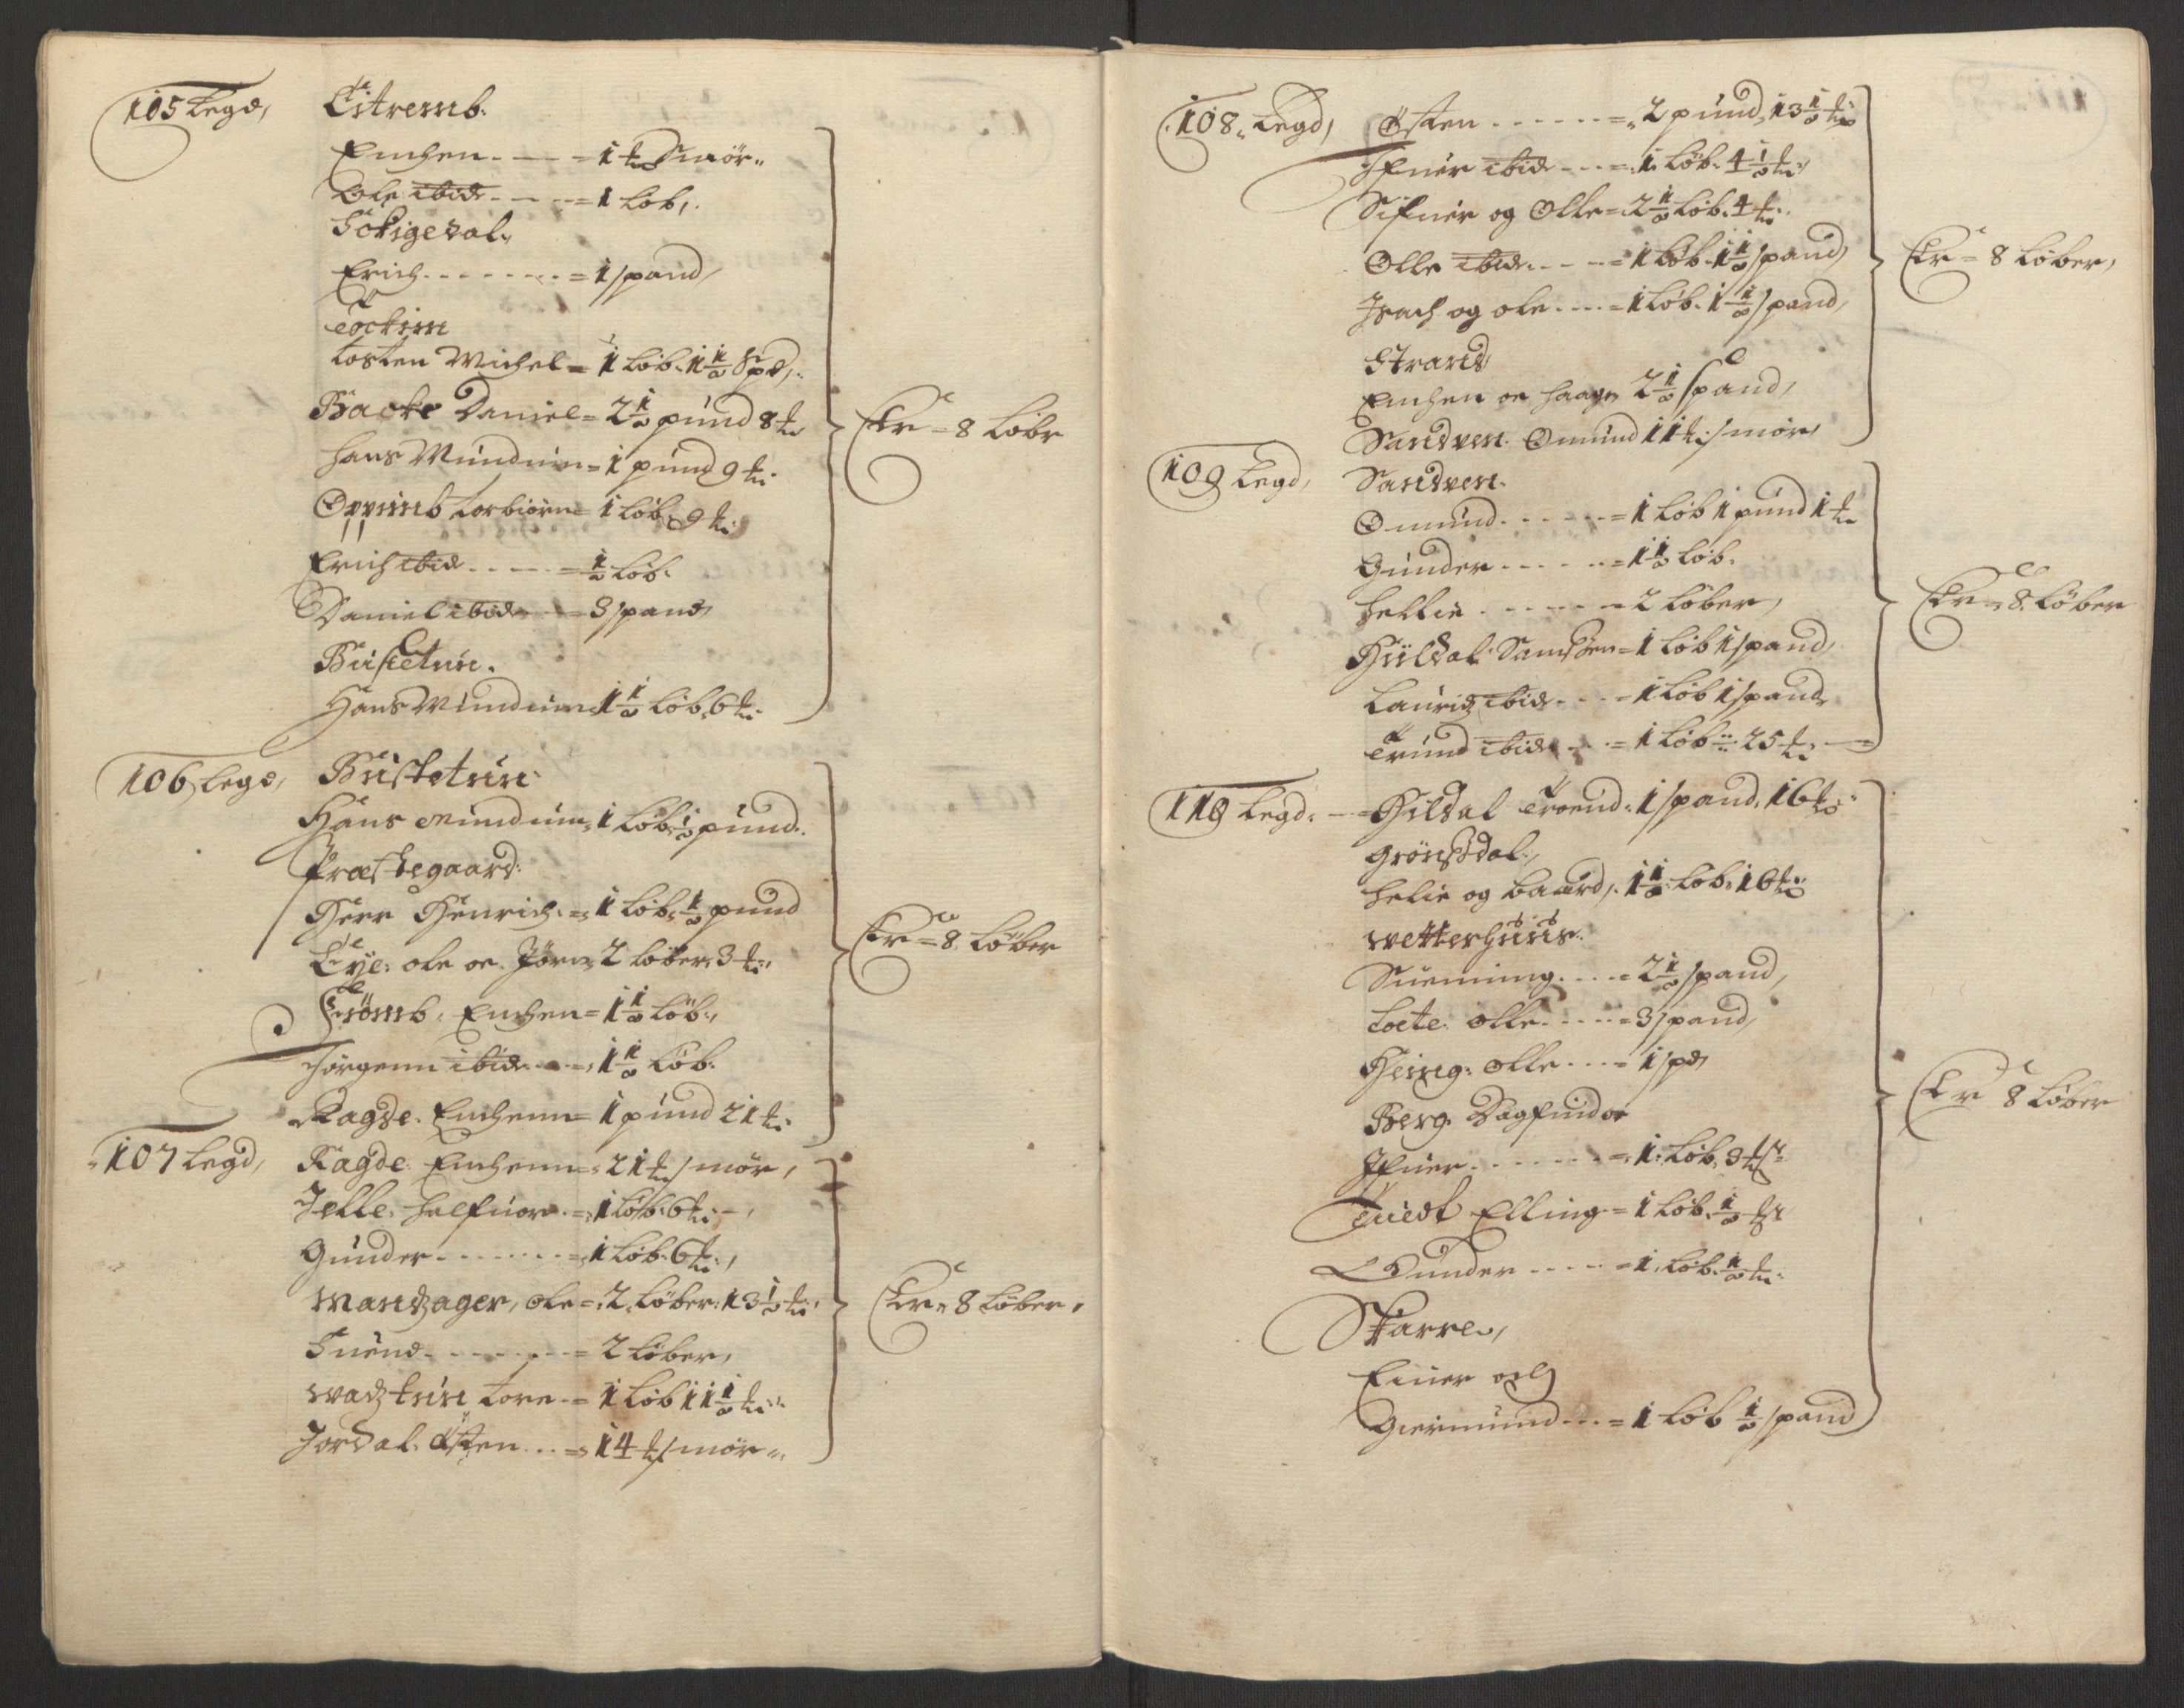 105 Legd, Eitremb.
Einchen. — = 1 ℔ Smör„
Ole ibid. - - - = 1 Løb,.
Erich. - - - - - = 1 spand,
Tockim
Tosten Michel = 1 Løb. 1 ½ Spd,.
Backe Daniel = 2 ½ pund 8 ℔
Hans Munduin = 1 pund 9 ℔.
Oppimb Torbiørn = 1 Løb 9 ℔.
Erich ibid - - - = ½ Løb.
Daniel ibid - - = 3 spand
Busketun.
Hans Munduim 1 ½ Løb. 6 ℔.
Er = 8 Løbr
106 Legd, Busketun.
Hans Munduim, 1 Løb. ½ pund.
Præstegaard.
Herr Henrich. = 1 Løb. ½ pund
Eye: ole oc Jørn, 2 løber. 3 ℔.,
Einchen = 1 ½ Løb.,
Jørgenn ibid. - - = 1 ½ Løb.
Ragde. Einchenn = 1 pund 21 ℔.
Er = 8 Løber
107 Legd, Ragde. Einchenn = 21 ℔ smör,
Jelle. Halfuor. = 1 Løb. 6 ℔.,
Gunder - - - - - = 1 Løb. 6 ℔.,
Mandzager, ole = 2 Løber. 13 ½ ℔.,
Suend - - - - - = 2 Løber,
Vadztun Tore = 1 Løb 11 ½ ℔.
Jordal. Østen. . . = 14 ℔ smör„
Er = 8 Løber,
108. Legd, Østen - - - - - = 2 pund, 13 ½ ℔.
Ifuer ibid - - - = 1 Løb. 4 ½ ℔.,
Sifuer og Olle = 2 ½ Løb. 4 ℔.
Olle ibid. - - - = 1 Løb. 1 ½ spand,
Isach og ole - - - = 1 Løb. 1 ½ spand,
Strand,
Einchen oc Haagn 2 ½ spand,
Sandven. Omund 11 ℔. smör,
Er = 8 Løber,
109 Legd, Sandven.
Omund. - - - - - = 1 Løb 1 pund 1 ℔
Gunder - - - - - = 1 ½ Løb.
Hellie - - - - - = 2 Løber,
Hildal Samsøn = 1 Løb 1 spand,
Lauridz ibid - - - = 1 Løb 1 spand,
Trund ibid - - = 1 Løb 25 ℔. —
Er = 8 Løber
110 Legd. — Hildal Troend. 1 spand, 16 ℔.
Grönsdal.,
Helie og Baard,. 1 ½ Løb. 16 ℔.
Wetterhuus.
Suenning. - - - = 2 ½ spand,
Loete Olle - - - - = 3 spand,
Heing: Olle - - - = 1 spd,
Berg. Dagfind oc
Ifuer. - - - - - = 1 Løb. 3 ℔ Sr
Tuedt Elling = 1 Løb. ½ ℔
Gunder - - - - = 1 Løb. ½ ℔.
Skarre,
Einer og
Giermund - - - = 1 Løb ½ spand
Er 8 Løber